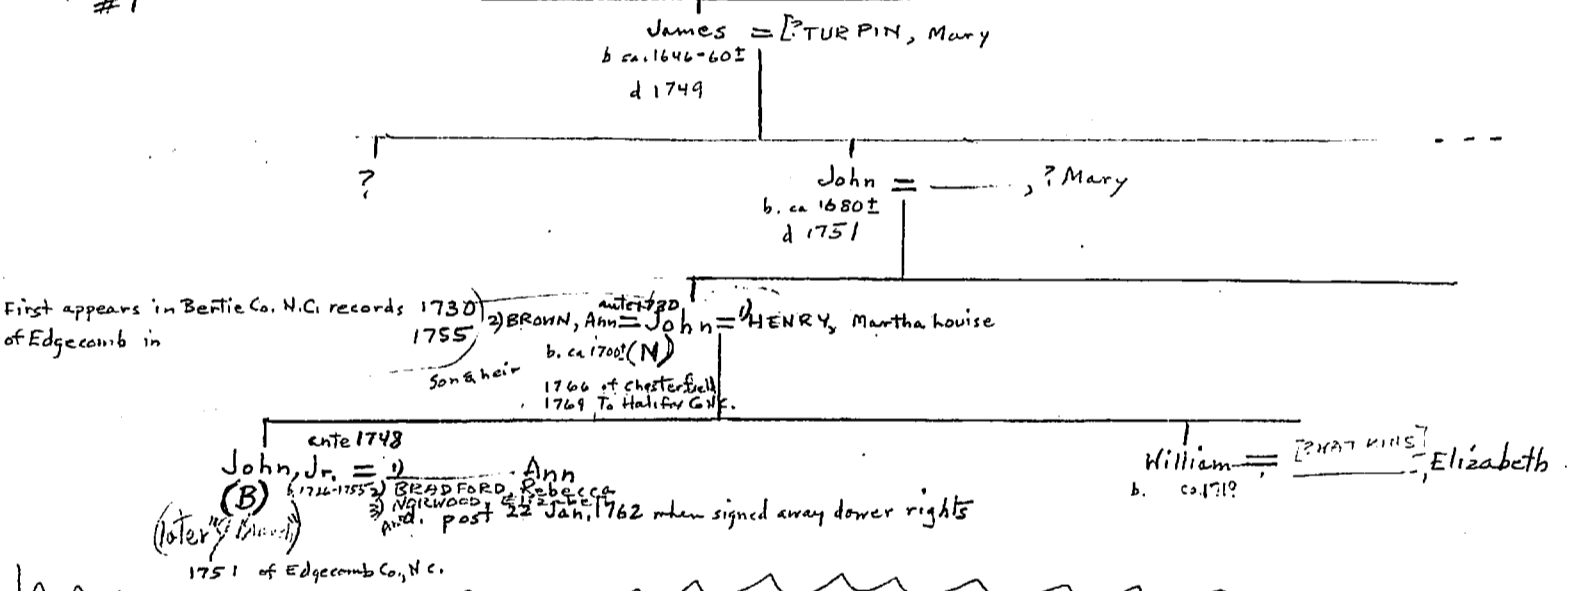 #1
James = [?TURPIN, Mary
b ca. 1646-60±
d 1749
?
John = ——, ? Mary
b. ca 1680±
d 1751
First appears in Bertie Co. N.C. records 1730
of Edgecomb in 1755
2) BROWN, Ann = John = 1) HENRY, Martha Louise
ante 1730
b. ca 1700± (N)
Son & heir
1766 of Chesterfield
1769 To Halifax Co N.C.
ante 1748
John, Jr. = 1) —— Ann
(B)
2) BRADFORD, Rebecca
3) NORWOOD, Elizabeth
Ann d. post 22 Jan, 1762 when signed away dower rights
(later
1751 of Edgecomb Co., N C.
William = ——, Elizabeth
b. ca. 171?